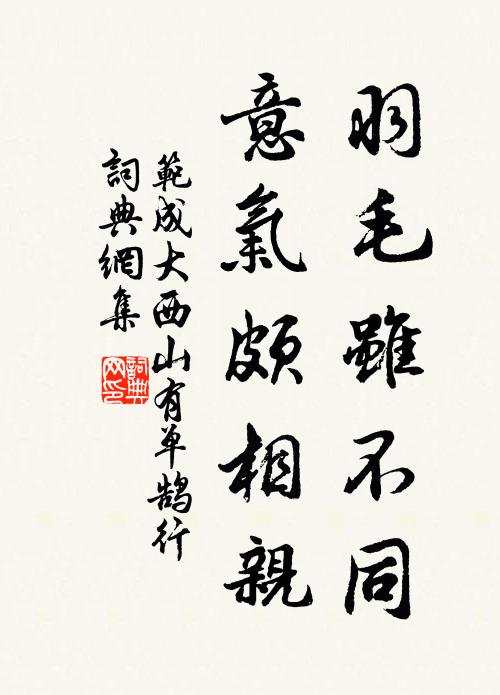 羽毛雖不同
意氣頗相親
範成大西山有单鵠行
詞典網集
詞典
网印